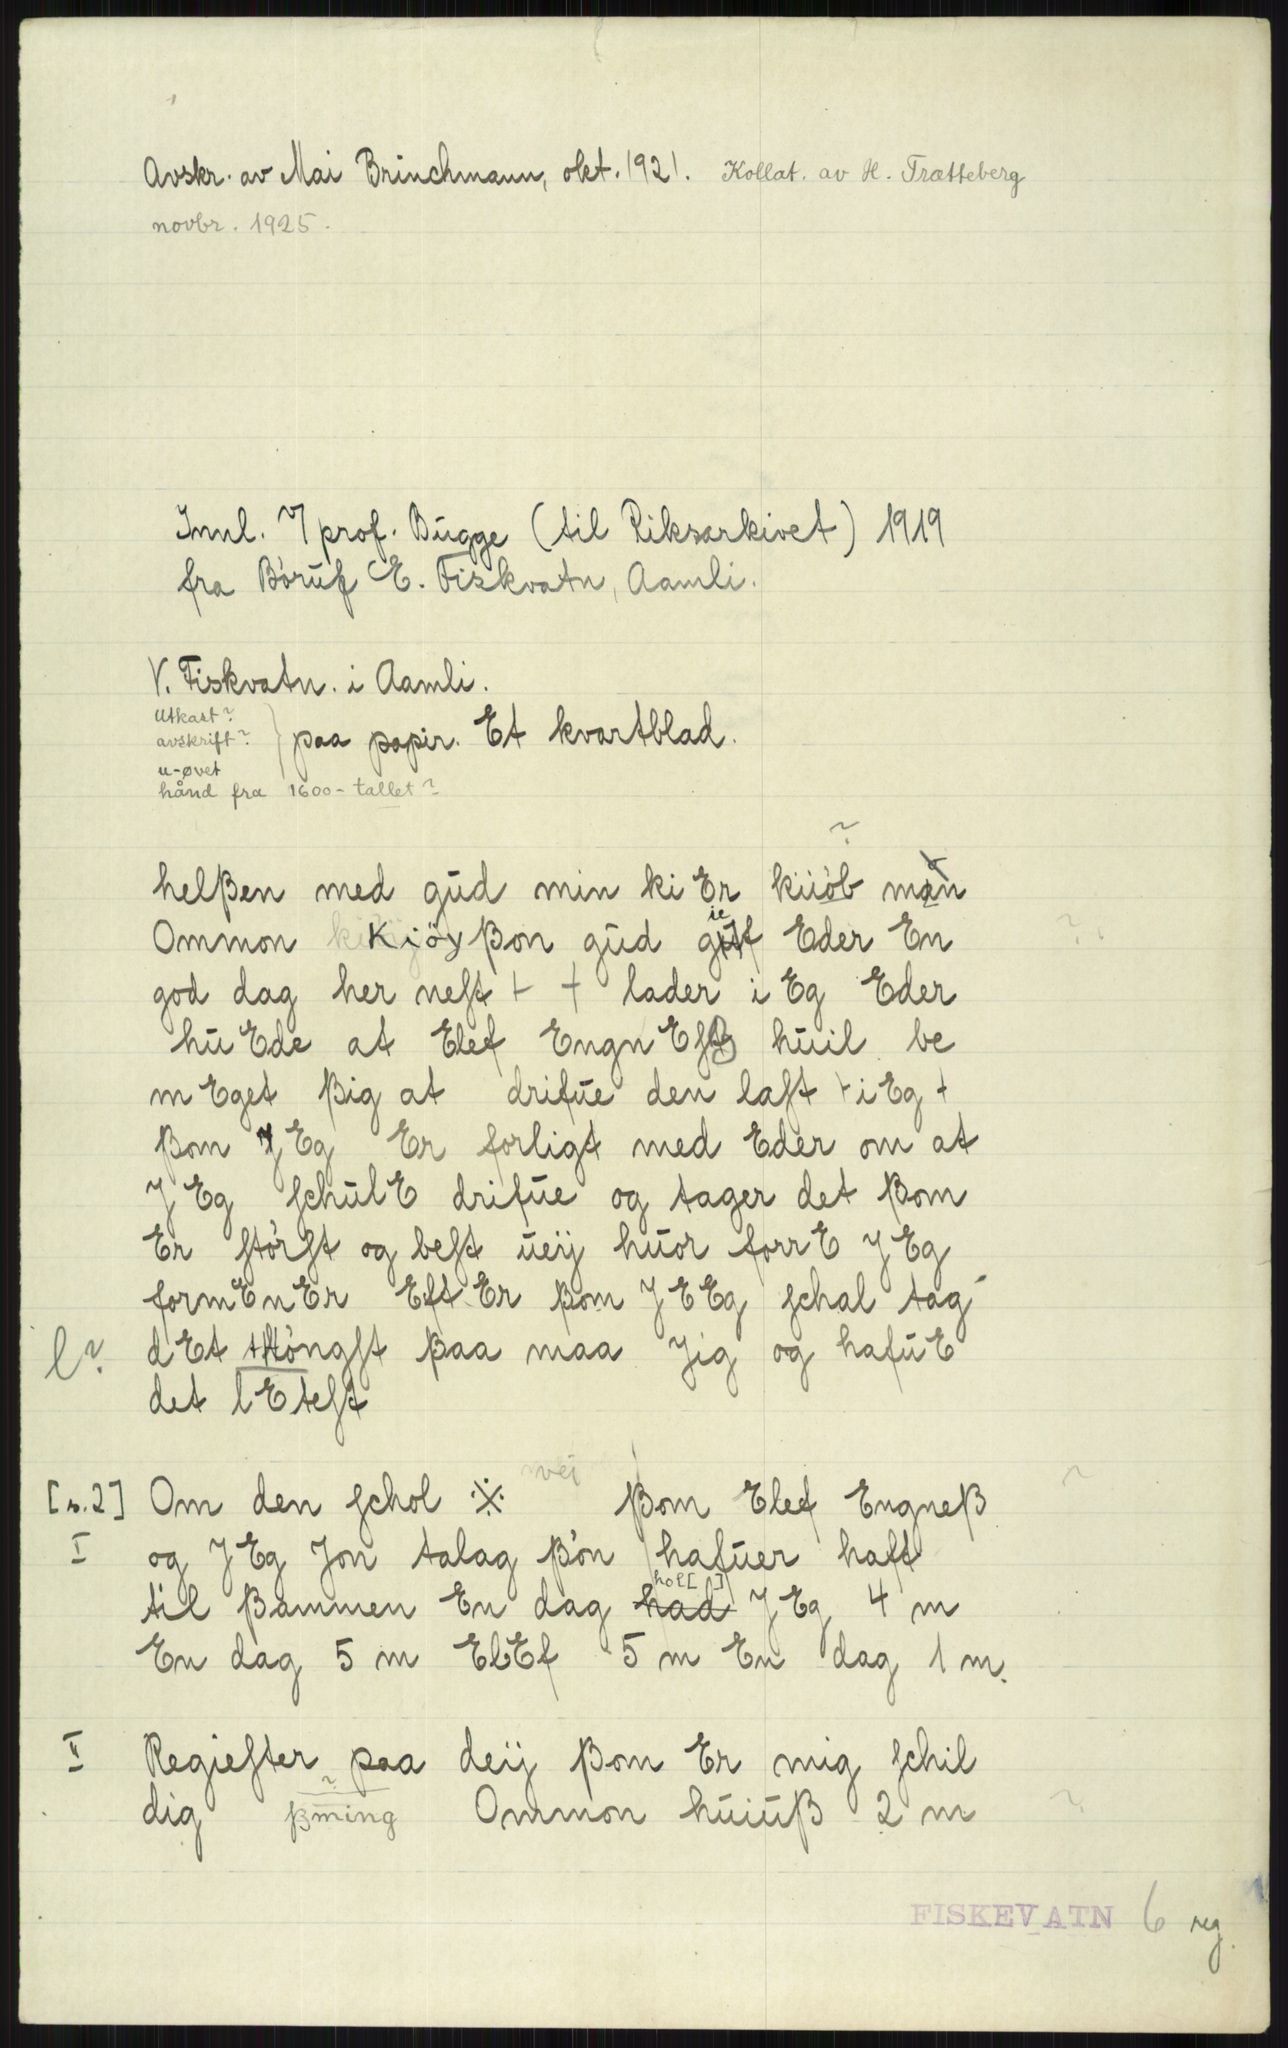 Avskr. av Mai Brinchmann, okt. 1921. Kollat. av H. Trætteberg
novbr. 1925.
Innl. v/ prof. Bugge (til Riksarkivet) 1919
fra Bóruf E. Fiskvatn, Aamli.
V. Fiskvatn. i Aamli.
Utkast?
avskrift? } paa papir. Et kvartblad.
u-øvet
hånd fra 1600-tallet?
?
helßen med gud min ki Er kuób man
Ommon Kjöy ßon gud gief Eder En ?
god dag her nest + + lader i Eg Eder
hu Ede at Elef Engn Esß huil be
m Eget ßig at drifue den last + i Eg +
ßom J Eg Er forligt med Eder om at
J Eg schulE drifue og tager det ßom
Er stórst og best ueij huor forrE J Eg
formEnEr EftEr ßom J E Eg schal tag
l? dEt tstóngst ßaa maa Jig og hafuE
det lEtest
vei
[s.2] Om den schol ※ ßom Elef Engneß ?
I og J Eg Jon talag ßón hafuer haft
hol[ ]
til ßammen En dag had J Eg 4 m
En dag 5 m ElEf 5 m En dag 1 m.
II Regiester paa deij ßom Er mig schil
?
dig ßming Ommon huiuß 2 m ?
FISKEVATN 6 reg.